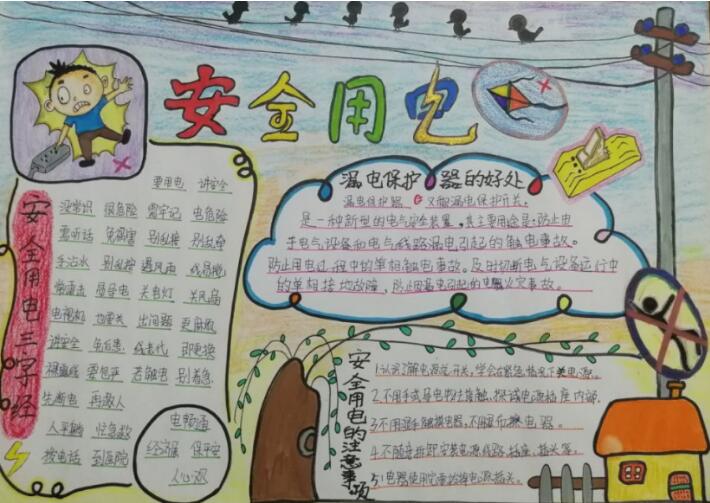 安全用电
安全用电三字经
要用电 讲安全
没常识 很危险 需牢记 电危险
需听话 免祸害 别乱接 别乱牵
手沾水 别乱接 遇风雨 线易脱
易导电 关电灯 关风扇
电视机 也要关 出问题 更麻烦
讲安全 免后患 线老化 即更换
若触电 别着急
先断电 再救人
人平躺 忙急救
拨电话 到医院
电畅通
保平安
漏电保护器的好处
漏电保护器 又叫漏电保护开关。
是一种新型的电气安全装置,其主要用途是:防止由
于电气设备和电气线路漏电引起的触电事故。
防止用电过程中的单相触电事故。及时切断电气设备运行中
的单相接地故障,防止因漏电引起的电气火灾事故。
安全用电的注意事项
1.认识了解电源总开关,学会在紧急情况下关电源。
2.不用手或导电物去接触、探试电源插座内部。
3.不用湿手触摸电器,不用湿布擦电器。
4.不随意拆卸安装电源线路、插座、插头等。
5.电器使用完毕拔电源插头。